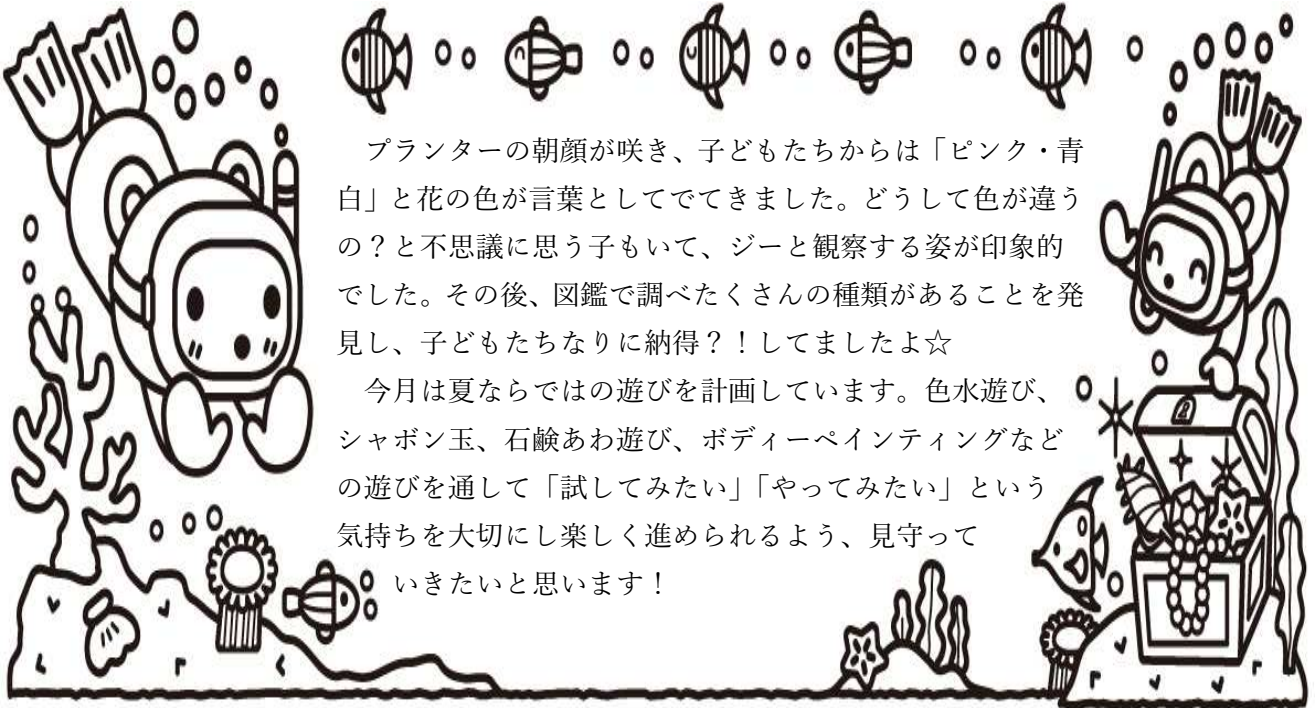 プランターの朝顔が咲き、子どもたちからは「ピンク・青
白」と花の色が言葉としてでてきました。どうして色が違う
の？と不思議に思う子もいて、ジーと観察する姿が印象的
でした。その後、図鑑で調べたくさんの種類があることを発
見し、子どもたちなりに納得？！してましたよ☆
今月は夏ならではの遊びを計画しています。色水遊び、
シャボン玉、石鹸あわ遊び、ボディーペインティングなど
の遊びを通して「試してみたい」「やってみたい」という
気持ちを大切にし楽しく進められるよう、見守って
いきたいと思います！